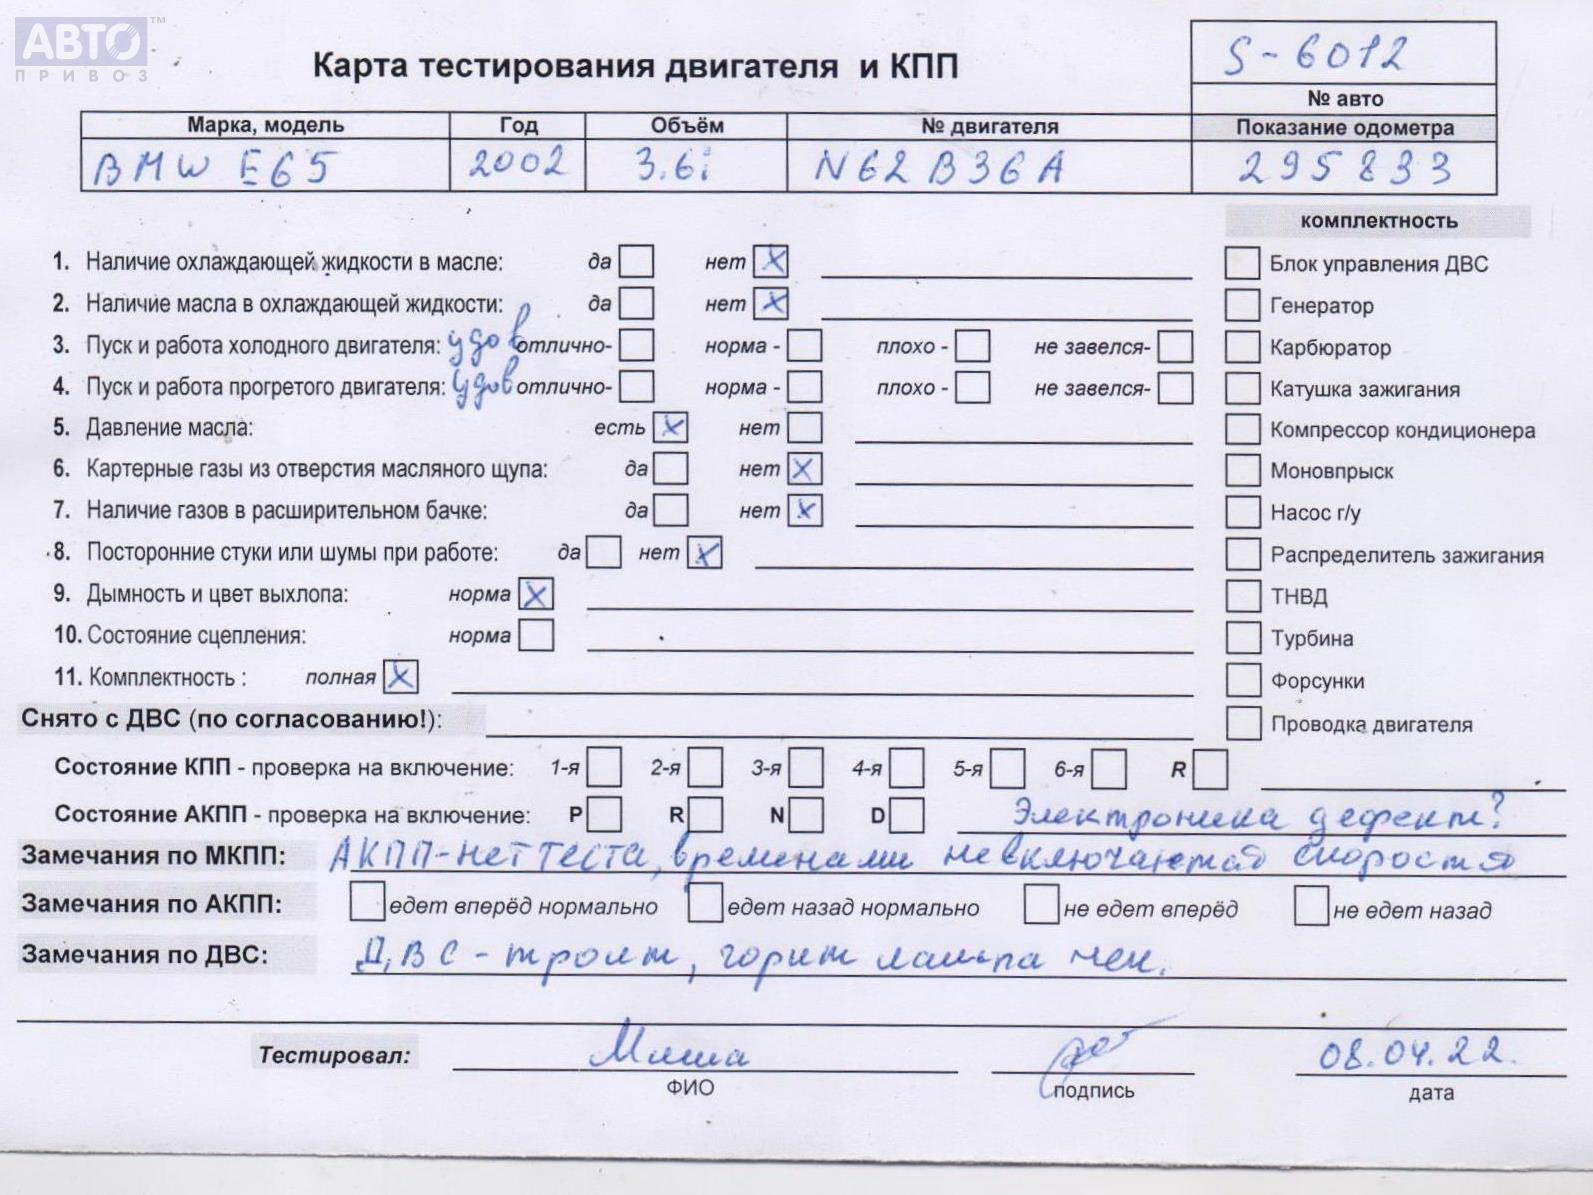 АВТО™
ПРИВОЗ
Карта тестирования двигателя и КПП
S-6012
№ авто
Марка, модель Год Объём № двигателя Показание одометра
BMW E65 2002 3.6i N62B36A 295833
комплектность
1. Наличие охлаждающей жидкости в масле: да нет X Блок управления ДВС
2. Наличие масла в охлаждающей жидкости: да нет X Генератор
3. Пуск и работа холодного двигателя: удов отлично- норма - плохо - не завелся- Карбюратор
4. Пуск и работа прогретого двигателя: удов отлично- норма - плохо - не завелся- Катушка зажигания
5. Давление масла: есть X нет Компрессор кондиционера
6. Картерные газы из отверстия масляного щупа: да нет X Моновпрыск
7. Наличие газов в расширительном бачке: да нет X Насос г/у
8. Посторонние стуки или шумы при работе: да нет X Распределитель зажигания
9. Дымность и цвет выхлопа: норма X ТНВД
10. Состояние сцепления: норма Турбина
11. Комплектность : полная X Форсунки
Снято с ДВС (по согласованию!): Проводка двигателя
Состояние КПП - проверка на включение: 1-я 2-я 3-я 4-я 5-я 6-я R
Состояние АКПП - проверка на включение: P R N D Электроника дефект?
Замечания по МКПП: АКПП-нет теста, временами не включаются скорости
Замечания по АКПП: едет вперёд нормально едет назад нормально не едет вперёд не едет назад
Замечания по ДВС: ДВС - троит, горит лампа чек.
Тестировал: Миша 08.04.22.
ФИО подпись дата